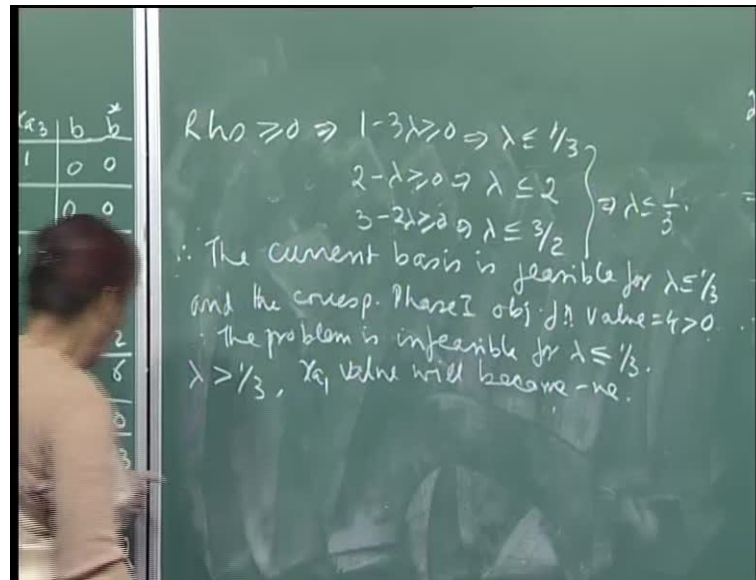 xa₃ | b | b*
1 | 0 | 0
0 | 0
2
6
0
3
Rhs ≥0 ⇒ 1-3λ≥0 ⇒ λ ≤ 1/3
2-λ≥0 ⇒ λ ≤ 2
3-2λ≥0 ⇒ λ ≤ 3/2
⇒ λ ≤ 1/3.
∴ The current basis is feasible for λ≤1/3
and the corresp. Phase I obj. fn value=4>0.
∴ The problem is infeasible for λ ≤ 1/3.
λ > 1/3, xa₁ value will become -ve.